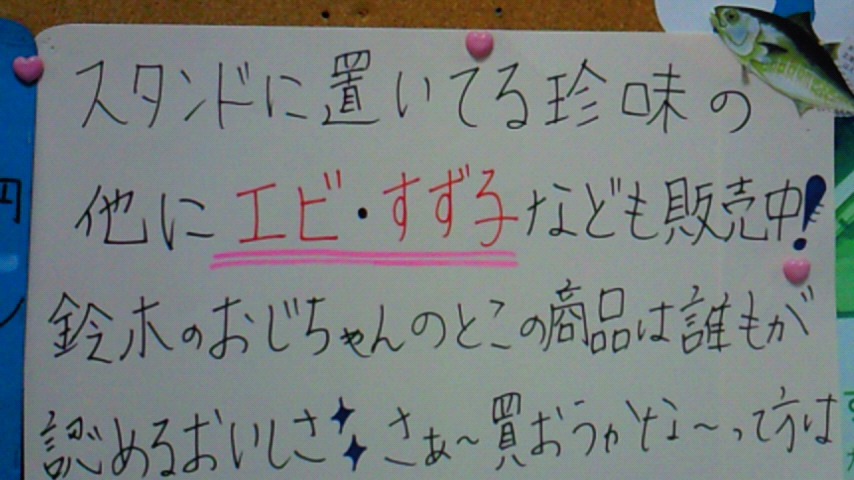 スタンドに置いてる珍味の
他にエビ・すず子なども販売中!
鈴木のおじちゃんのとこの商品は誰もが
認めるおいしさ さぁ~買おうかな~って方は
円